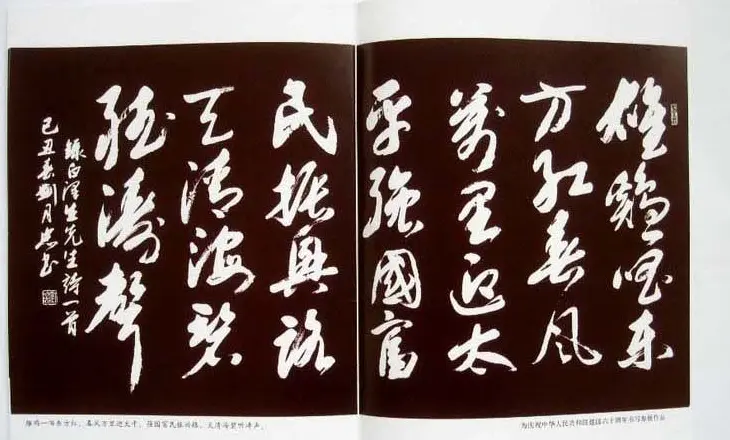 雄鷄一唱东
方红春风
萬里迎太
平強國富
民振興路
天清海碧
聽濤聲
録白泽生先生诗一首
己丑春劉月书
雄鸡一唱东方红，春风万里迎太平。强国富民振兴路，天清海碧听涛声。
为庆祝中华人民共和国建国六十周年书写参展作品